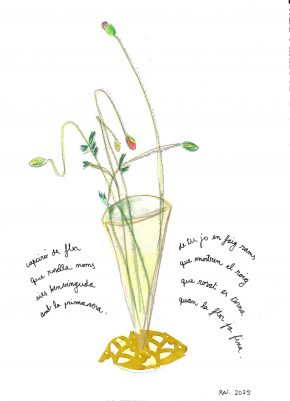 capciró de flor
que rosella noms,
ets benvinguda
amb la primavera.
de tu jo en faig rams,
que mostren el roig
que rosat es torna
quan la flor ja fina.
RN. 2025